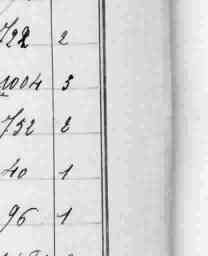 722 2
1004 3
752 2
40 1
96 1